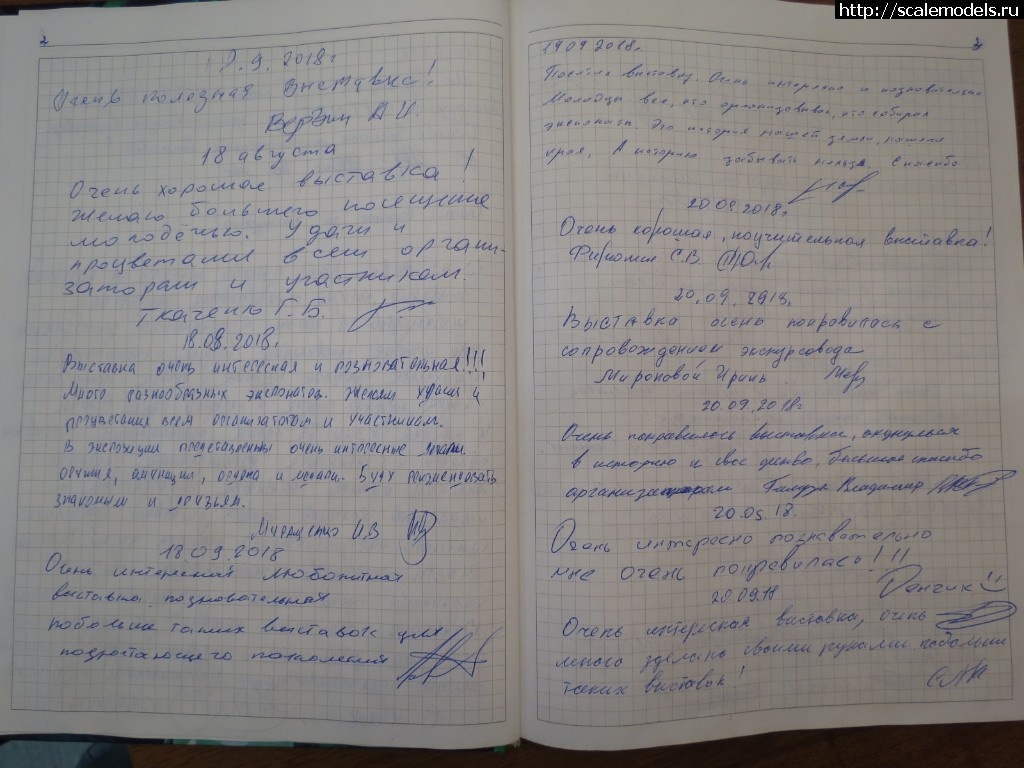 http://scalemodels.ru
2
9.2018г
Очень полезная выставка!
А И.
18 августа
Очень хорошая выставка!
Желаю большего посещение
молодёжью. Удачи и
процветания всем органи-
заторам и участникам.
Ткаченко Г.Б.
18.08.2018г.
Выставка очень интересная и познавательная!!!
Много разнообразных экспонатов. Желаем удачи и
процветания всем организаторам и участникам.
В экспозиции представленны очень интересные
оружия, амуниция, ордена и медали. Буду рекомендовать
знакомым и друзьям.
И.В
18.09.2018
Очень интересная любопитная
выставка познавательная
побольше таких выставок для
подростающего поколения
3
19.09.2018г.
Посетила выставку. Очень интересно и познавательно
Молодцы все, кто организовывал, кто собирал
экспонаты. Это история нашей земли, нашего
края, А историю забывать нельзя. Спасибо
20.09.2018г
Очень хорошая, поучительная выставка!
С.В.
20.09.2018г.
Выставка очень понравилась с
сопровождением экскурсовода
Мироновой Ирины.
20.09.2018г
Очень понравилось выставка, окунулся
в историю и своё детво, большое спасибо
организаторам Владимир
20.09.18.
Очень интересно познавательно
мне очень понравилась!!!
20.09.18 Денчик
Очень интересная выставка, очень
много зделано своими руками побольши
таких выставок!